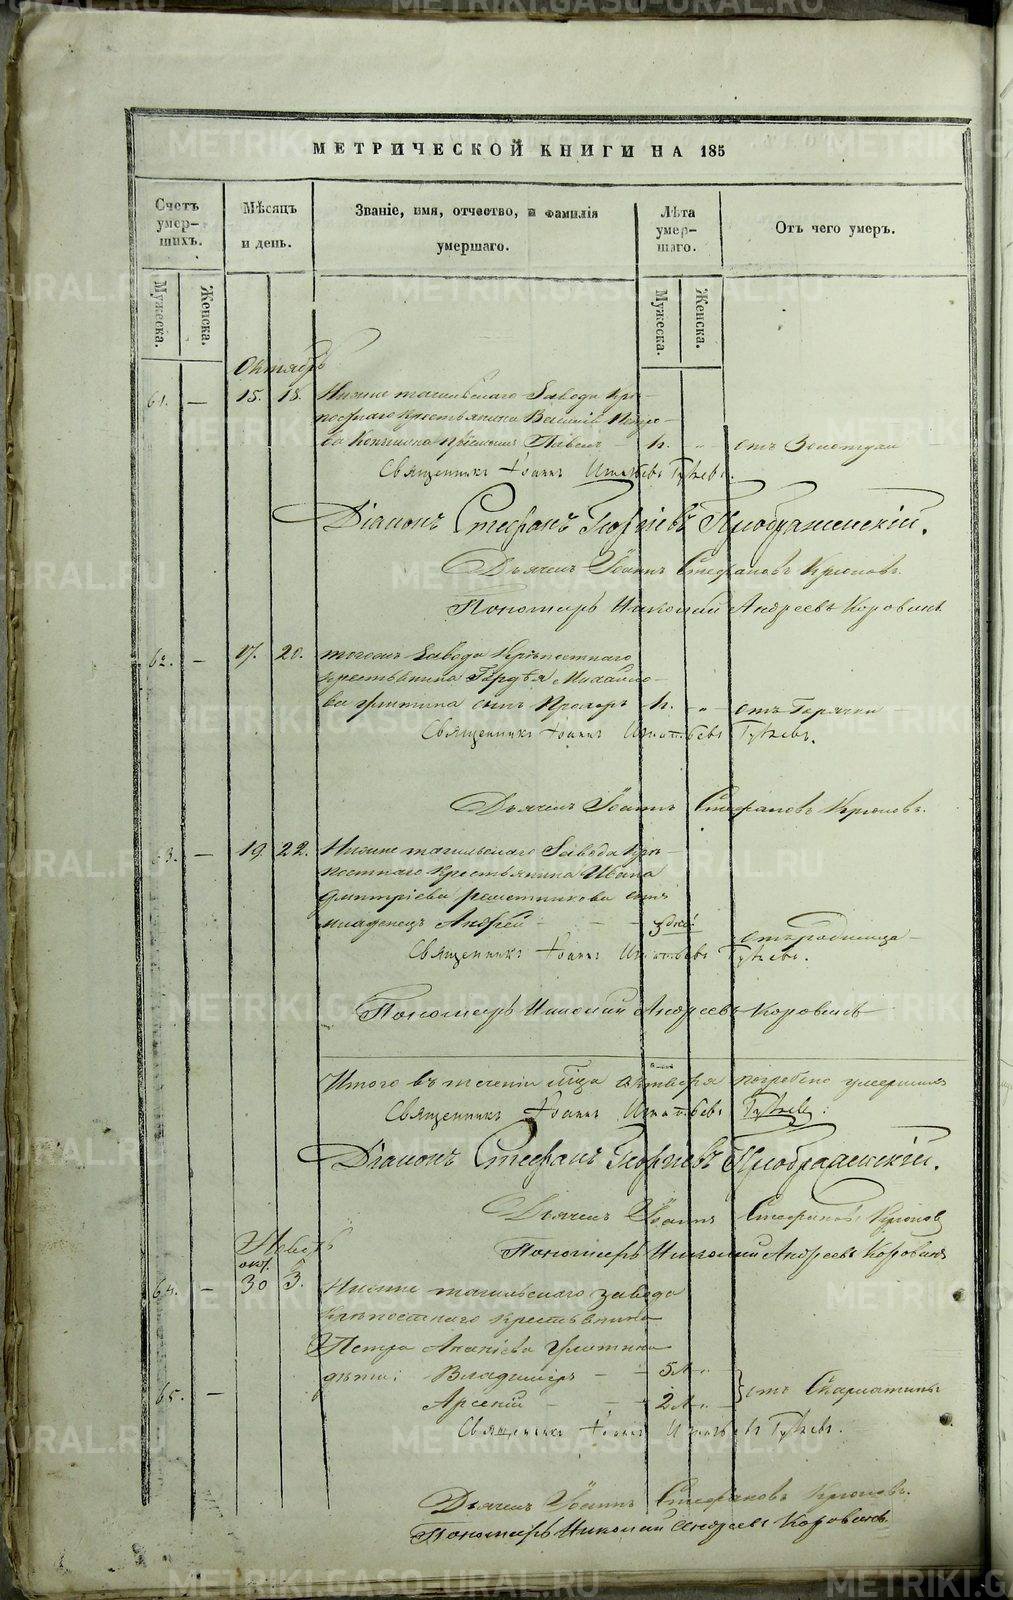 МЕТРИЧЕСКОЙ КНИГИ НА 185
Счетъ умер-шихъ.
Мѣсяцъ и день.
Званіе, имя, отчество, и фамилія умершаго.
Лѣта умер-шаго.
Отъ чего умеръ.
Мужеска.
Женска.
Мужеска.
Женска.
Октябрь
61. — 15. 18. Нижне тагильскаго Завода Крѣ-
постнаго Крестьянина
Павелъ
Священникъ Іоаннъ Игнатьевъ
Діаконъ Стефанъ Георгіевъ Преображенскій.
Дьячекъ Іоаннъ Стефановъ Крюковъ
Пономарь Николай Андреевъ Коровинъ
62. — 17. 20. тогожъ Завода Крѣпостнаго
крестьянина Михайло-
ва сынъ отъ Горячки
Священникъ Іоаннъ Игнатьевъ
Дьячекъ Іоаннъ Стефановъ Крюковъ.
63. — 19. 22. Нижне тагильскаго Завода Крѣ-
постнаго Крестьянина Ивана
Дмитріева решетникова сынъ
младенецъ Андрей
отъ родимца
Священникъ Іоаннъ Игнатьевъ
Пономарь Николай Андреевъ Коровинъ
Итого въ теченіи мѣсяца октября погребено умершихъ
Священникъ Іоаннъ Игнатьевъ
Діаконъ Стефанъ Георгіевъ Преображенскій.
Дьячекъ Іоаннъ Стефановъ Крюковъ
Пономарь Николай Андреевъ Коровинъ
Ноябрь
окт.
64. — 30 3. Нижне тагильскаго завода
Крѣпостнаго крестьянина
Петра Ананіева
дѣти: Владимиръ — 5 л.
65. — Арсеній — 2 л. отъ Скарлатины
Священникъ Іоаннъ Игнатьевъ
Дьячекъ Іоаннъ Стефановъ Крюковъ.
Пономарь Николай Андреевъ Коровинъ
METRIKI.GASO-URAL.RU